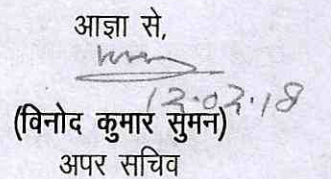 आज्ञा से,
12.02.18
(विनोद कुमार सुमन)
अपर सचिव